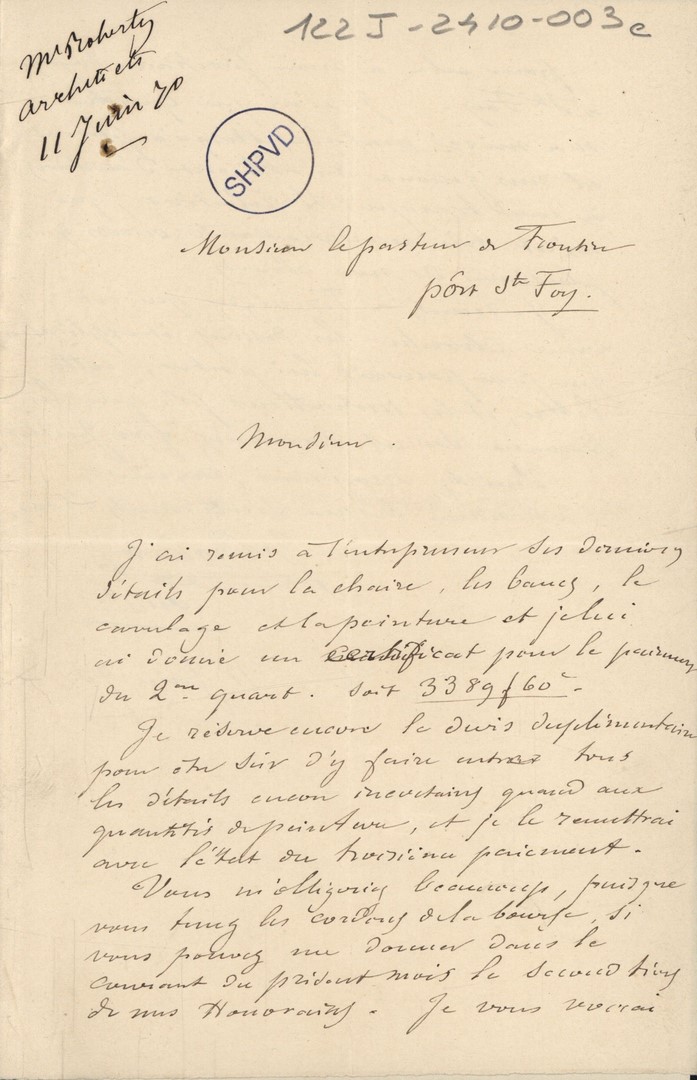 122 J-2410-003c
Mr Roberty
architecte
11 Juin 70
SHPVD
Monsieur le pasteur de
pôrt Ste Foy.
Monsieur.
J'ai remis à l'entrepreneur ses derniers
détails pour la chaire, les bancs, le
carrelage et la peinture et je lui
ai donné un certificat pour le paiement
du 2me quart. soit 3389f60c.
Je réserve encore le devis supplémentaire
pour être sûr d'y faire entrer tous
les détails encore incertains quand aux
quantités de peinture, et je le remettrai
avec l'état du troisième paiement.
Vous m'obligeriez beaucoup, puisque
vous tenez les cordons de la bourse, si
vous pouvez me donner dans le
courant du présent mois le second tiers
de nos Honoraires. Je vous